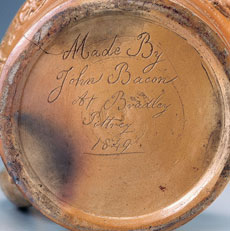 Made By
John Bacon
At Bradley
Pottrey
1849